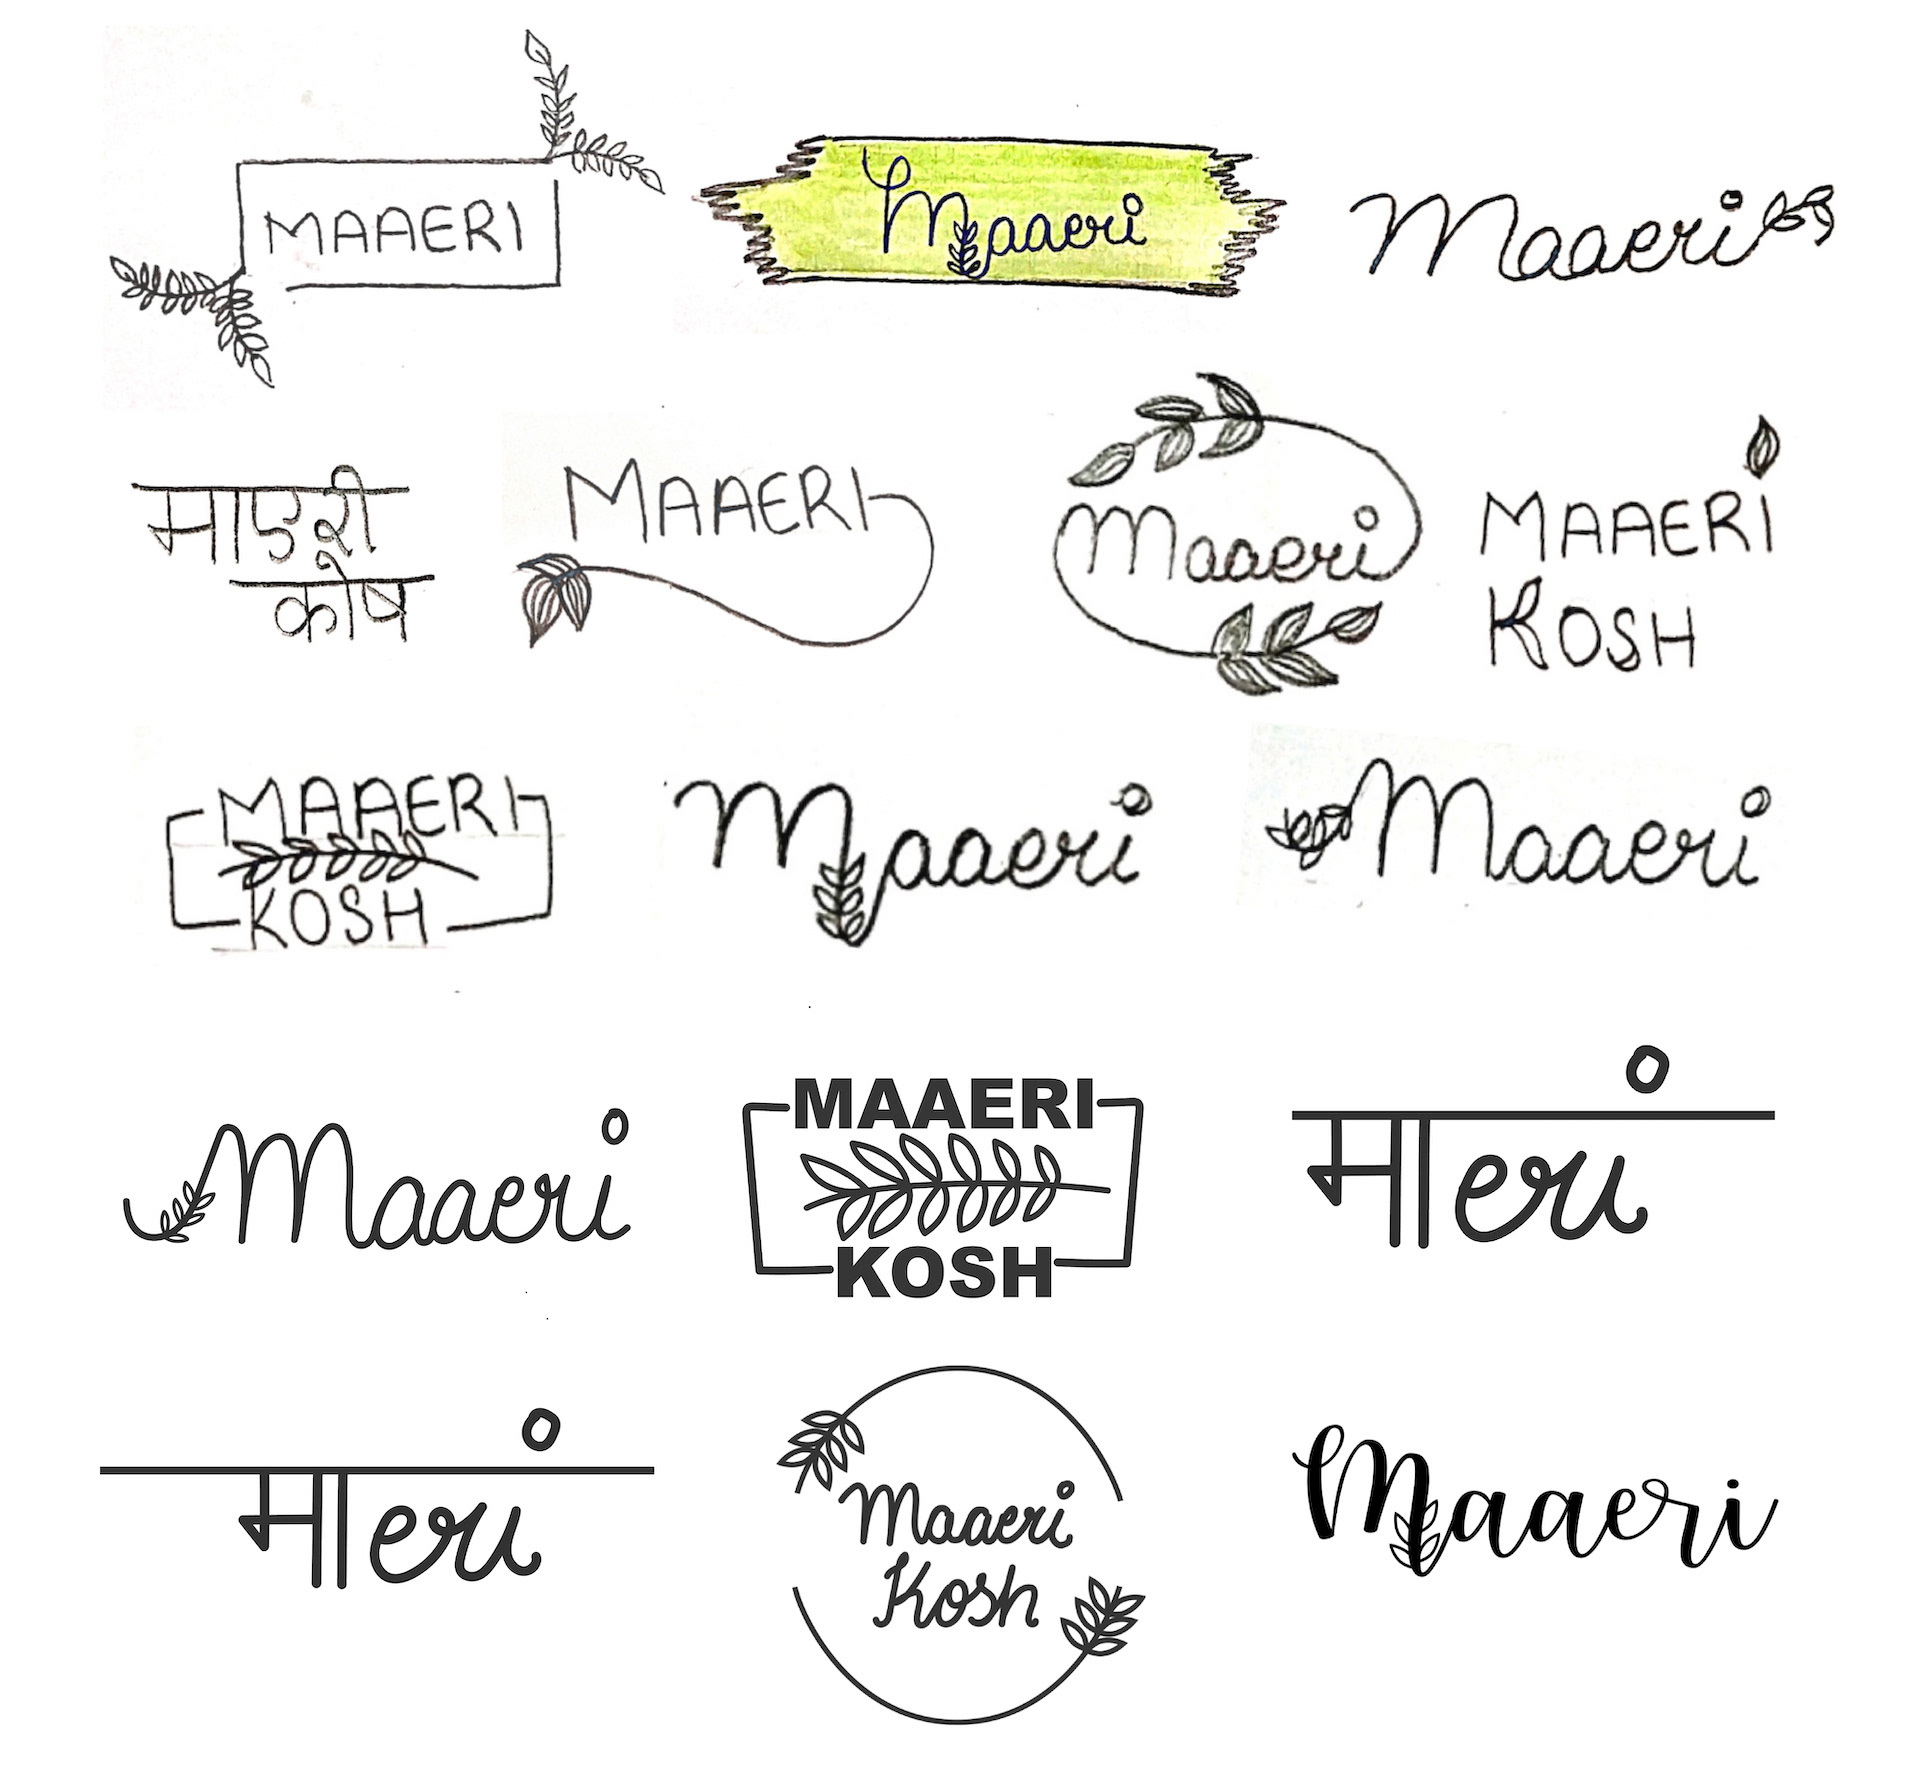 MAAERI
Maaeri
Maaeri
माएरी
कोष
MAAERI
Maaeri
MAAERI
KOSH
MAAERI
KOSH
Maaeri
Maaeri
Maaeri
MAAERI
KOSH
माeri
माeri
Maaeri
Kosh
Maaeri